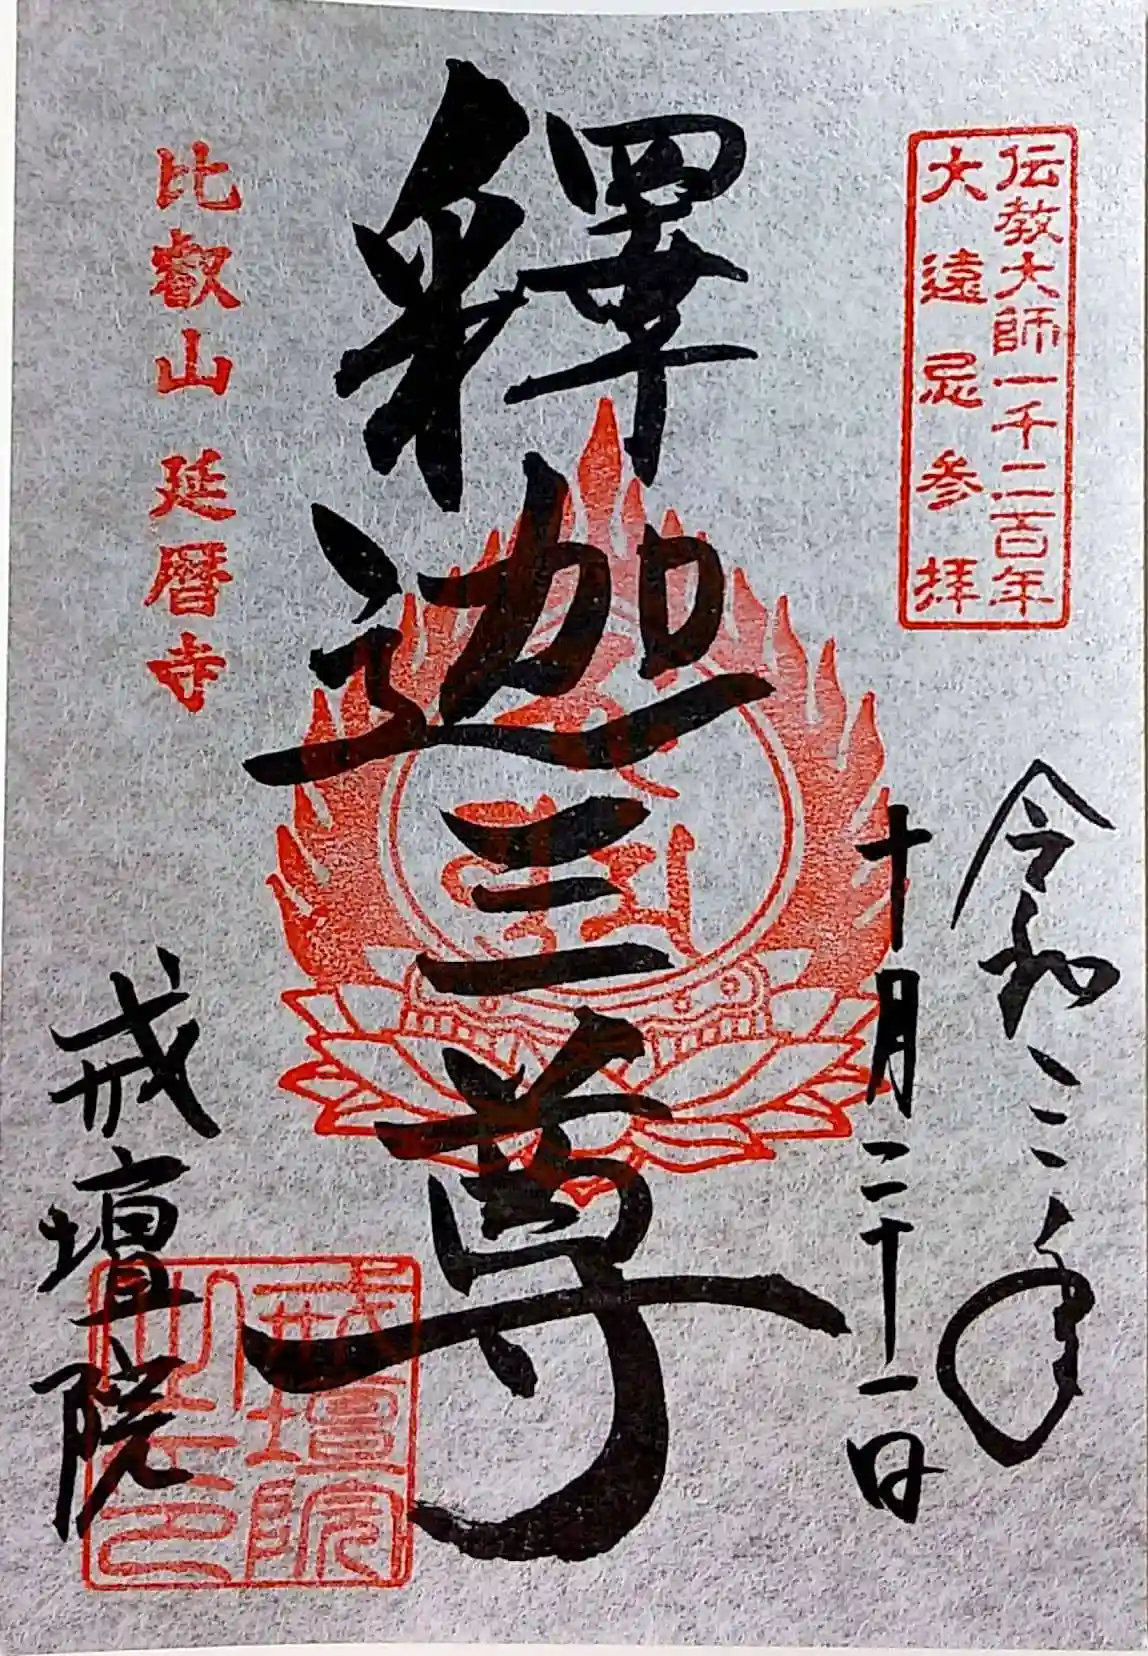 伝教大師一千二百年
大遠忌参拝
令和三年
十月二十一日
釋迦三尊
比叡山 延暦寺
戒壇院
戒壇院
之印